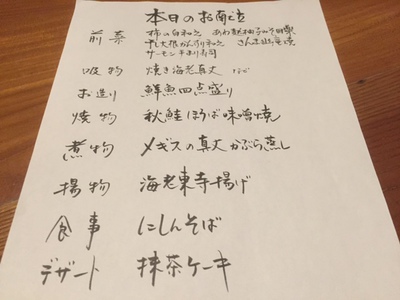 本日のお献立
前菜 柿の白和え あわ麩柚子みそ田楽
干し大根かんぴり和え さんま山椒煮
サーモン手まり寿司
吸物 焼き海老真丈
お造り 鮮魚四点盛り
焼物 秋鮭ほうば味噌焼
煮物 メギスの真丈かぶら蒸し
揚物 海老東寺揚げ
食事 にしんそば
デザート 抹茶ケーキ